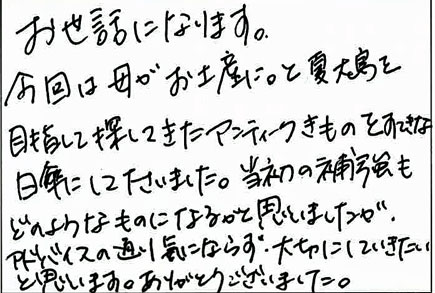 お世話になります。
今回は母がお土産に。と夏大島を
目指して探してきたアンティークきものをすてきな
日傘にして下さいました。当初の補強も
どのようなものになるかと思いましたが、
アドバイスの通り気にならず、大切にしていきたい
と思います。ありがとうございました。